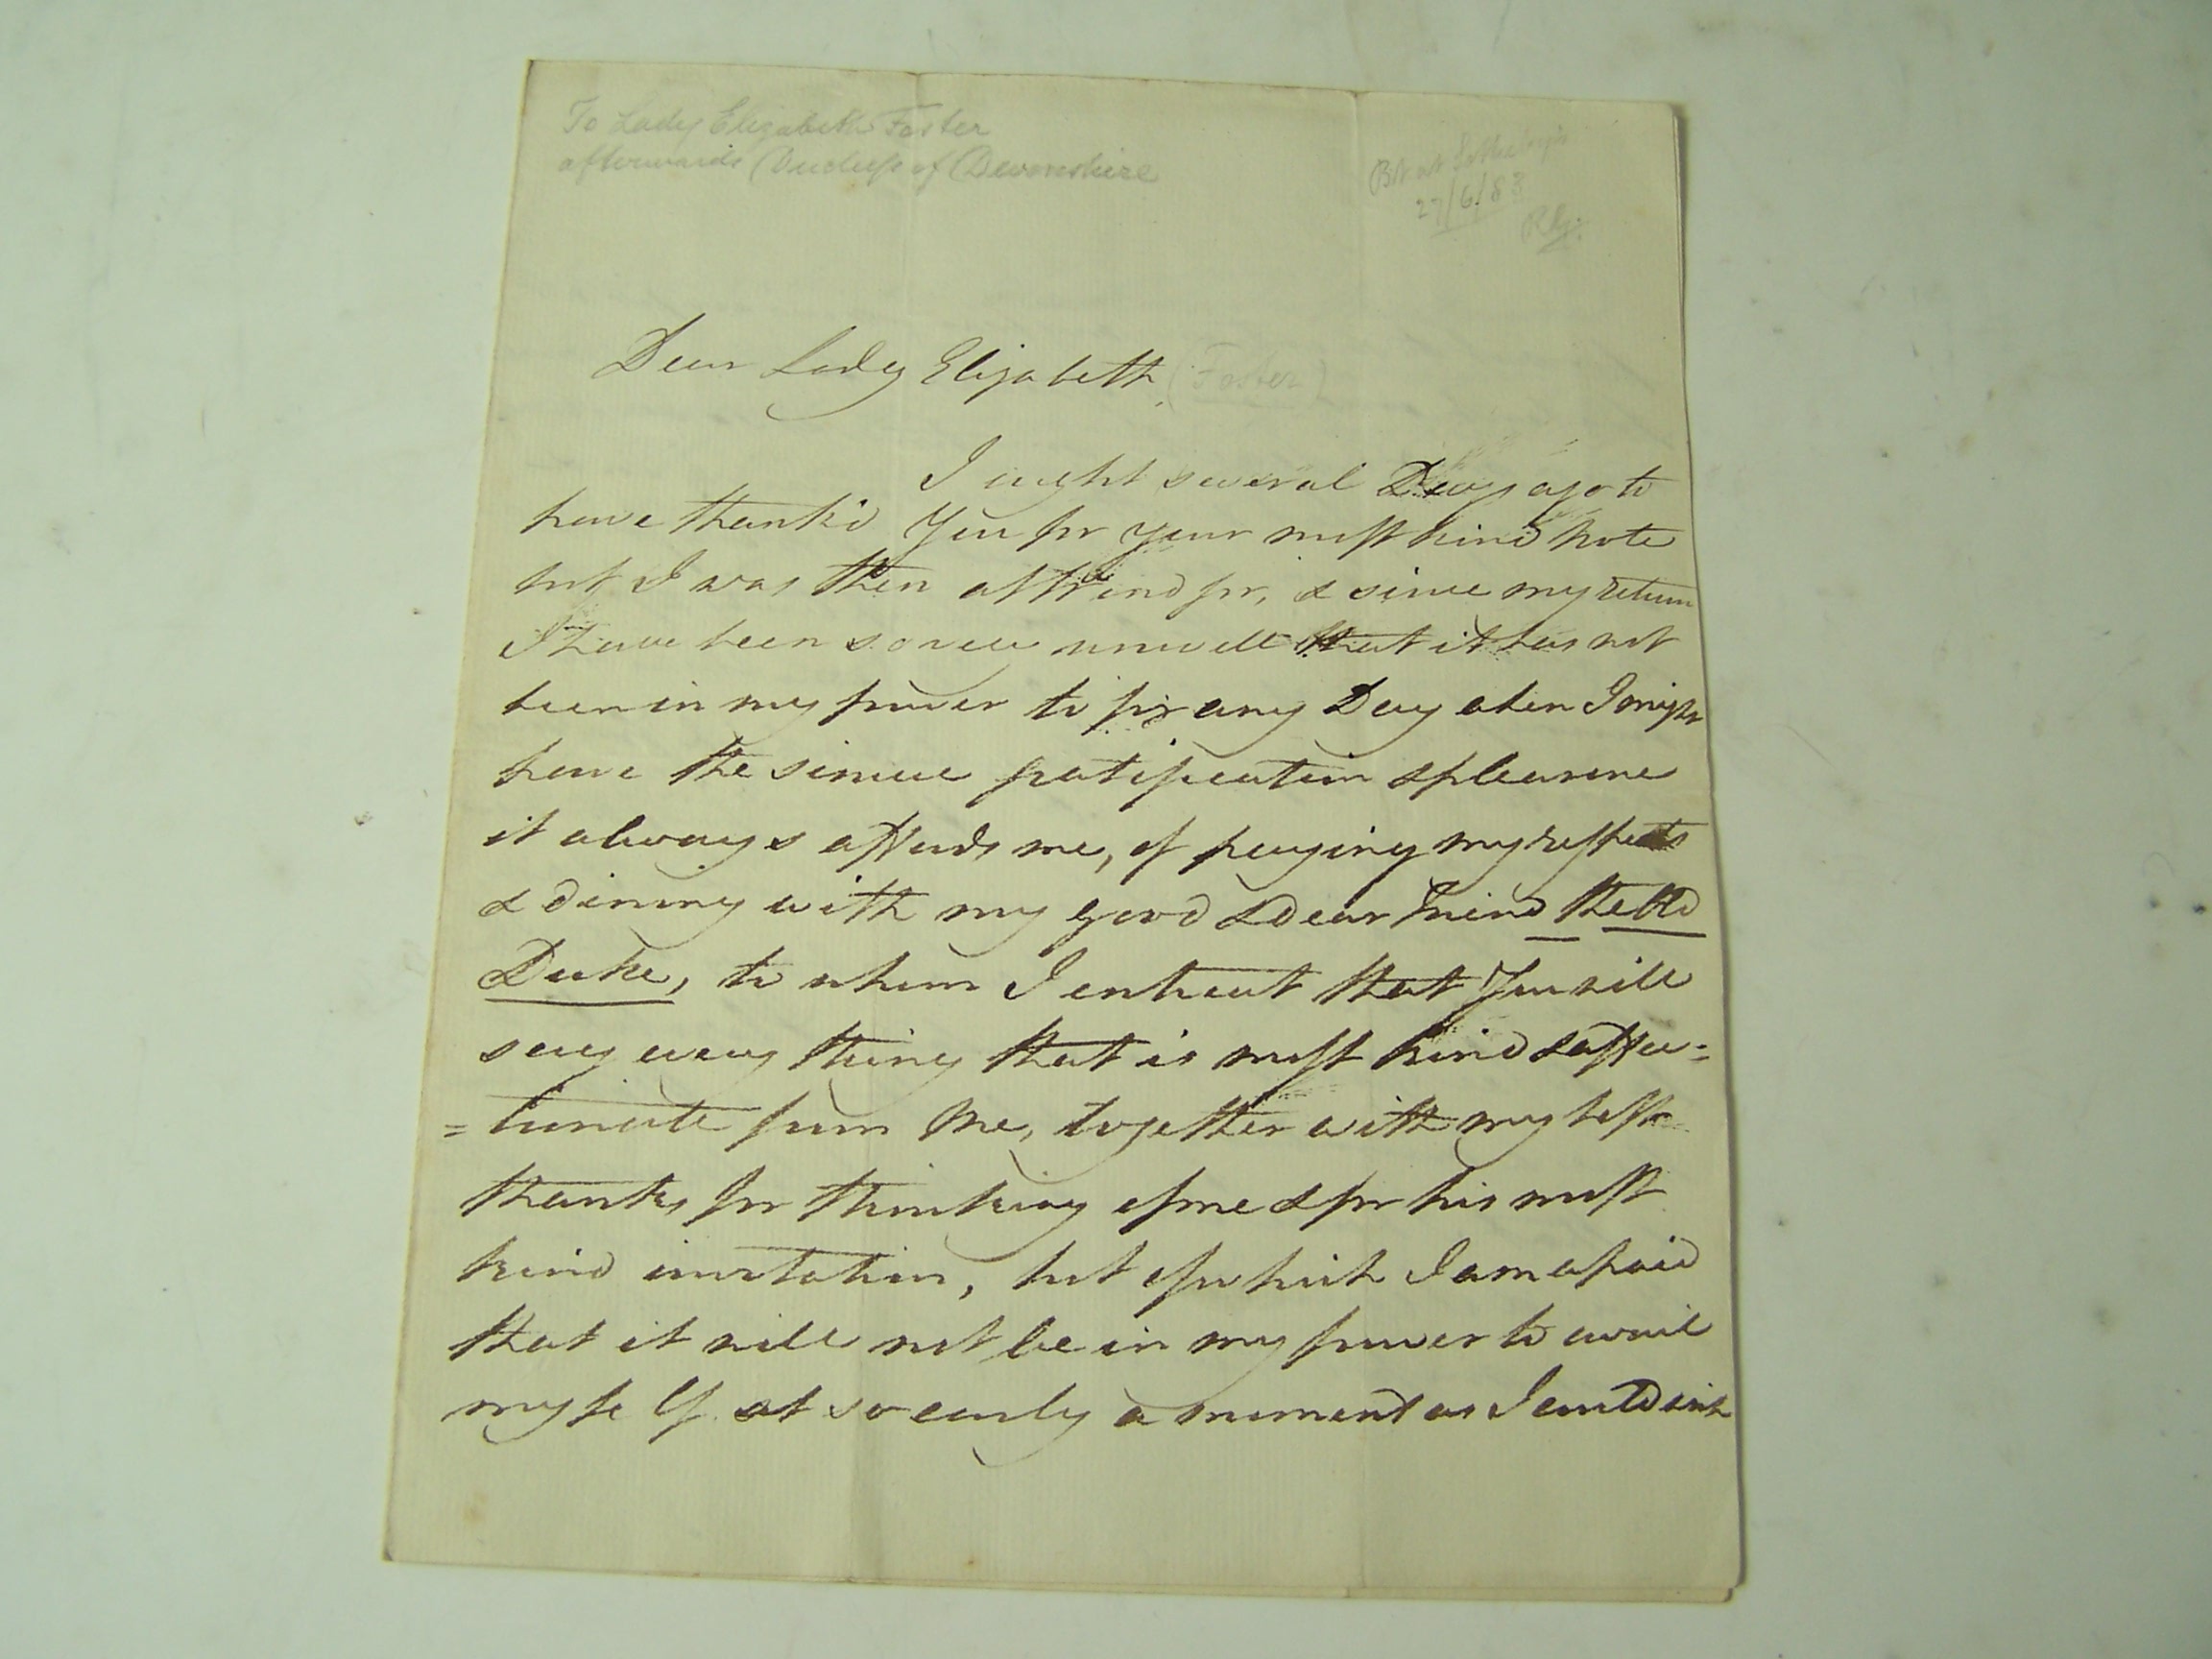 To Lady Elizabeth Foster
afterwards Duchess of Devonshire
Bt at Sotheby's
27/6/83
Dear Lady Elizabeth (Foster)
I ought several Days ago to
have thank'd You for your most kind note
but I was then at Windsor, & since my return
I have been so very unwell that it has not
been in my power to fix any Day when I might
have the sincere gratification & pleasure
it always affords me, of paying my respects
& dining with my good & dear friend the Old
Duke, to whom I entreat that You will
say every thing that is most kind & affec=
=tionate from me, together with my best
thanks for thinking of me & for his most
kind invitation, but of which I am afraid
that it will not be in my power to avail
myself at so early a moment as I could wish